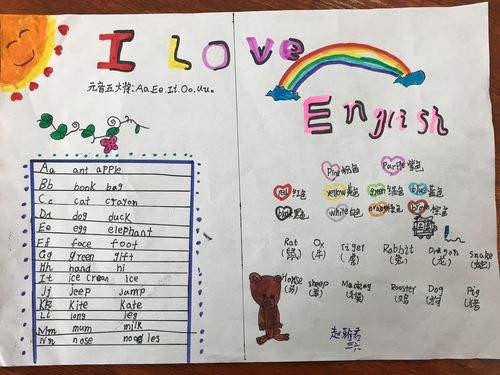 I LOVE
元音五大将: Aa Ee. Ii. Oo. Uu.
Aa ant apple
Bb book bag
Cc cat crayon
Dd dog duck
Ee egg elephant
Ff face foot
Gg green gift
Hh hand hi
Ii ice cream ice
Jj jeep jump
Kk Kite Kate
Ll long leg
Mm mum milk
Nn nose noodles
English
Pink 粉色 Purple 紫色
red 红色 yellow 黄色 green 绿色 blue 蓝色
black 黑色 white 白色 orange 橙色
Rat Ox Tiger Rabbit Dragon snake
(鼠) (牛) (虎) (兔) (龙) (蛇)
Horse sheep Rooster Dog Pig
(马) (羊) (猴) (鸡) (狗) (猪)
三六